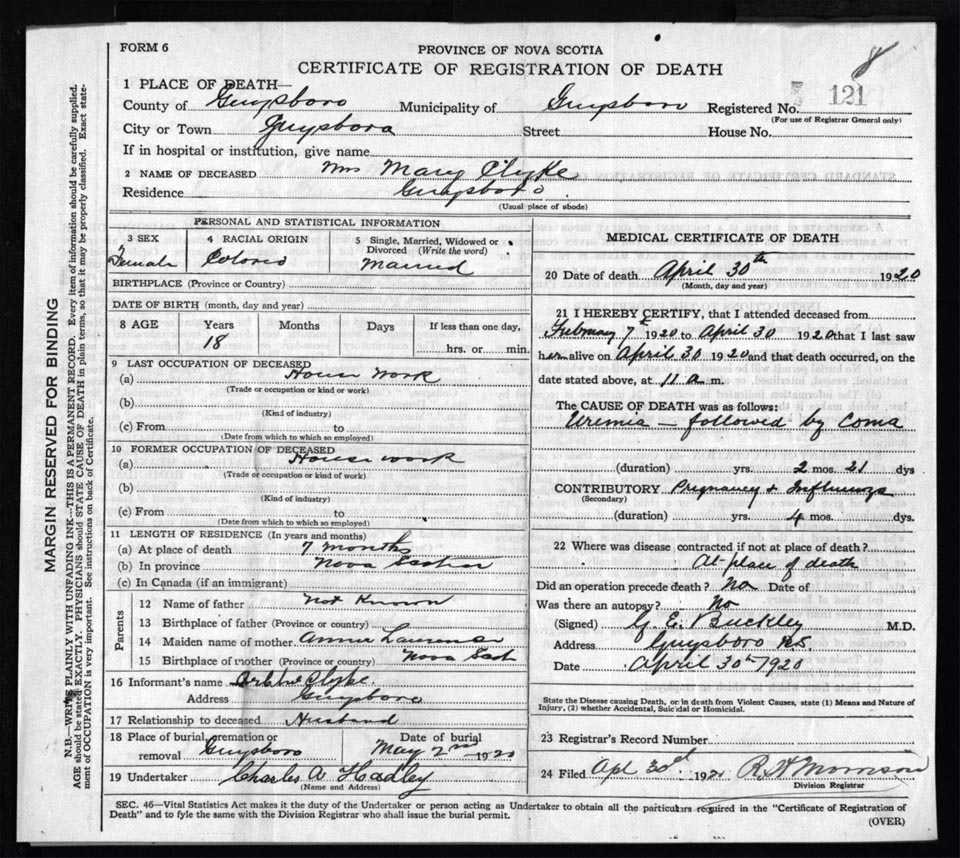 8
FORM 6
PROVINCE OF NOVA SCOTIA
CERTIFICATE OF REGISTRATION OF DEATH
1 PLACE OF DEATH—
County of Guysboro Municipality of Guysboro Registered No. 121
(For use of Registrar General only)
City or Town Guysboro Street House No.
If in hospital or institution, give name
2 NAME OF DECEASED Mrs Mary Clyke
Residence Guysboro
(Usual place of abode)
MARGIN RESERVED FOR BINDING
N.B.—WRITE PLAINLY WITH UNFADING INK—THIS IS A PERMANENT RECORD. Every item of information should be carefully supplied.
AGE should be stated EXACTLY. PHYSICIANS should STATE CAUSE OF DEATH in plain terms, so that it may be properly classified. Exact state-
ment of OCCUPATION is very important. See instructions on back of Certificate.
PERSONAL AND STATISTICAL INFORMATION
3 SEX 4 RACIAL ORIGIN 5 Single, Married, Widowed or
Divorced (Write the word)
Female Colored Married
BIRTHPLACE (Province or Country)
DATE OF BIRTH (month, day and year)
8 AGE Years Months Days If less than one day,
18 hrs. or min.
9 LAST OCCUPATION OF DECEASED
(a) House work
(Trade or occupation or kind or work)
(b)
(Kind of industry)
(c) From to
(Date from which to which so employed)
10 FORMER OCCUPATION OF DECEASED
(a) House work
(Trade or occupation or kind of work)
(b)
(Kind of industry)
(c) From to
(Date from which to which so employed)
11 LENGTH OF RESIDENCE (In years and months)
(a) At place of death 7 months
(b) In province Nova Scotia
(c) In Canada (if an immigrant)
Parents
12 Name of father not Known
13 Birthplace of father (Province or country)
14 Maiden name of mother Annie
15 Birthplace of mother (Province or country) Nova Scot
16 Informant's name Clyke
Address Guysboro
17 Relationship to deceased Husband
18 Place of burial, cremation or Date of burial
removal Guysboro May 2nd 1920
19 Undertaker Charles A Hadley
(Name and Address)
MEDICAL CERTIFICATE OF DEATH
20 Date of death April 30th 1920
(Month, day and year)
21 I HEREBY CERTIFY, that I attended deceased from
February 7th 1920 to April 30 1920 that I last saw
her alive on April 30 1920 and that death occurred, on the
date stated above, at 11 a m.
The CAUSE OF DEATH was as follows:
Uremia — followed by Coma
(duration) yrs. 2 mos. 21 dys
CONTRIBUTORY Pregnancy + Influenza
(Secondary)
(duration) yrs. 4 mos. dys.
22 Where was disease contracted if not at place of death?
At place of death
Did an operation precede death? No Date of
Was there an autopsy? No
(Signed) G. E. Buckley M.D.
Address Guysboro N.S.
Date April 30th 1920
State the Disease causing Death, or in death from Violent Causes, state (1) Means and Nature of
Injury, (2) whether Accidental, Suicidal or Homicidal.
23 Registrar's Record Number
24 Filed Apl 30th 192 R. H Morrison
Division Registrar
SEC. 46—Vital Statistics Act makes it the duty of the Undertaker or person acting as Undertaker to obtain all the particulars required in the "Certificate of Registration of
Death" and to fyle the same with the Division Registrar who shall issue the burial permit.
(OVER)